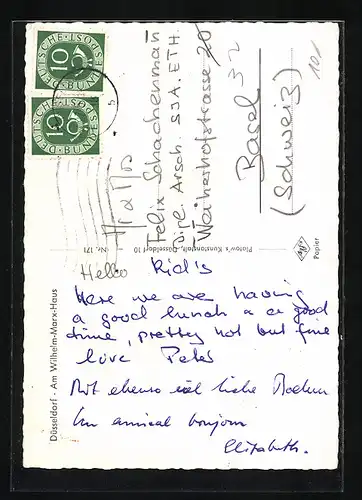 DEUTSCHE BUNDESPOST
10
DEUTSCHE BUNDESPOST
10
5
10.-
Felix Schachenman
Dipl. Arsch. SIA. ETH.
Weiherhofstrasse 20
Basel 32
(Schweiz)
Düsseldorf · Am Wilhelm-Marx-Haus
Kunstanstalt, Düsseldorf 10
Nr. 171
Agfa
Papier
Hello
Here we are having
a good lunch a a good
time, pretty hot but fine
love Peter
Mit ebenso viel liebe
Un amical bonjour
Elizabeth.